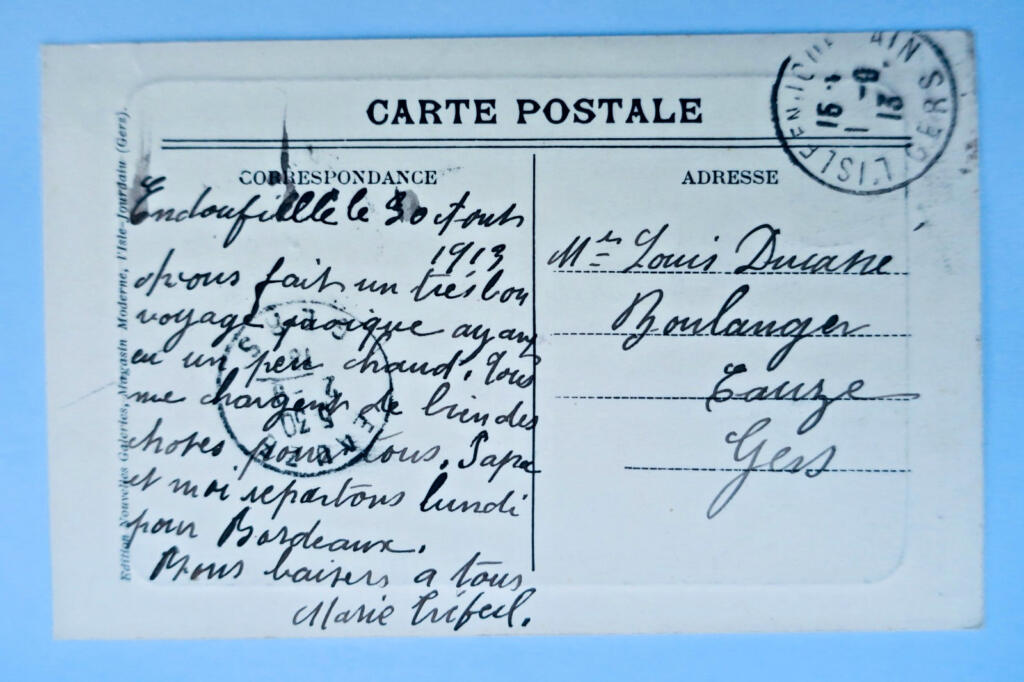 CARTE POSTALE
CORRESPONDANCE
Endoufielle le 30 Aout
1913
Avons fait un trés bon
voyage quoique ayant
eu un peu chaud. Tous
me chargent de bien des
choses pour tous. Papa
et moi repartons lundi
pour Bordeaux.
Bons baisers a tous
Marie
ADRESSE
Louis Ducasse
Boulanger
Eauze
Gers
L'ISLE-EN-JOURDAIN GERS
1 -9
13
EAUZE
5 30
GERS
Edition Nouvelles Galeries, Magasin Moderne, l'Isle-Jourdain (Gers).